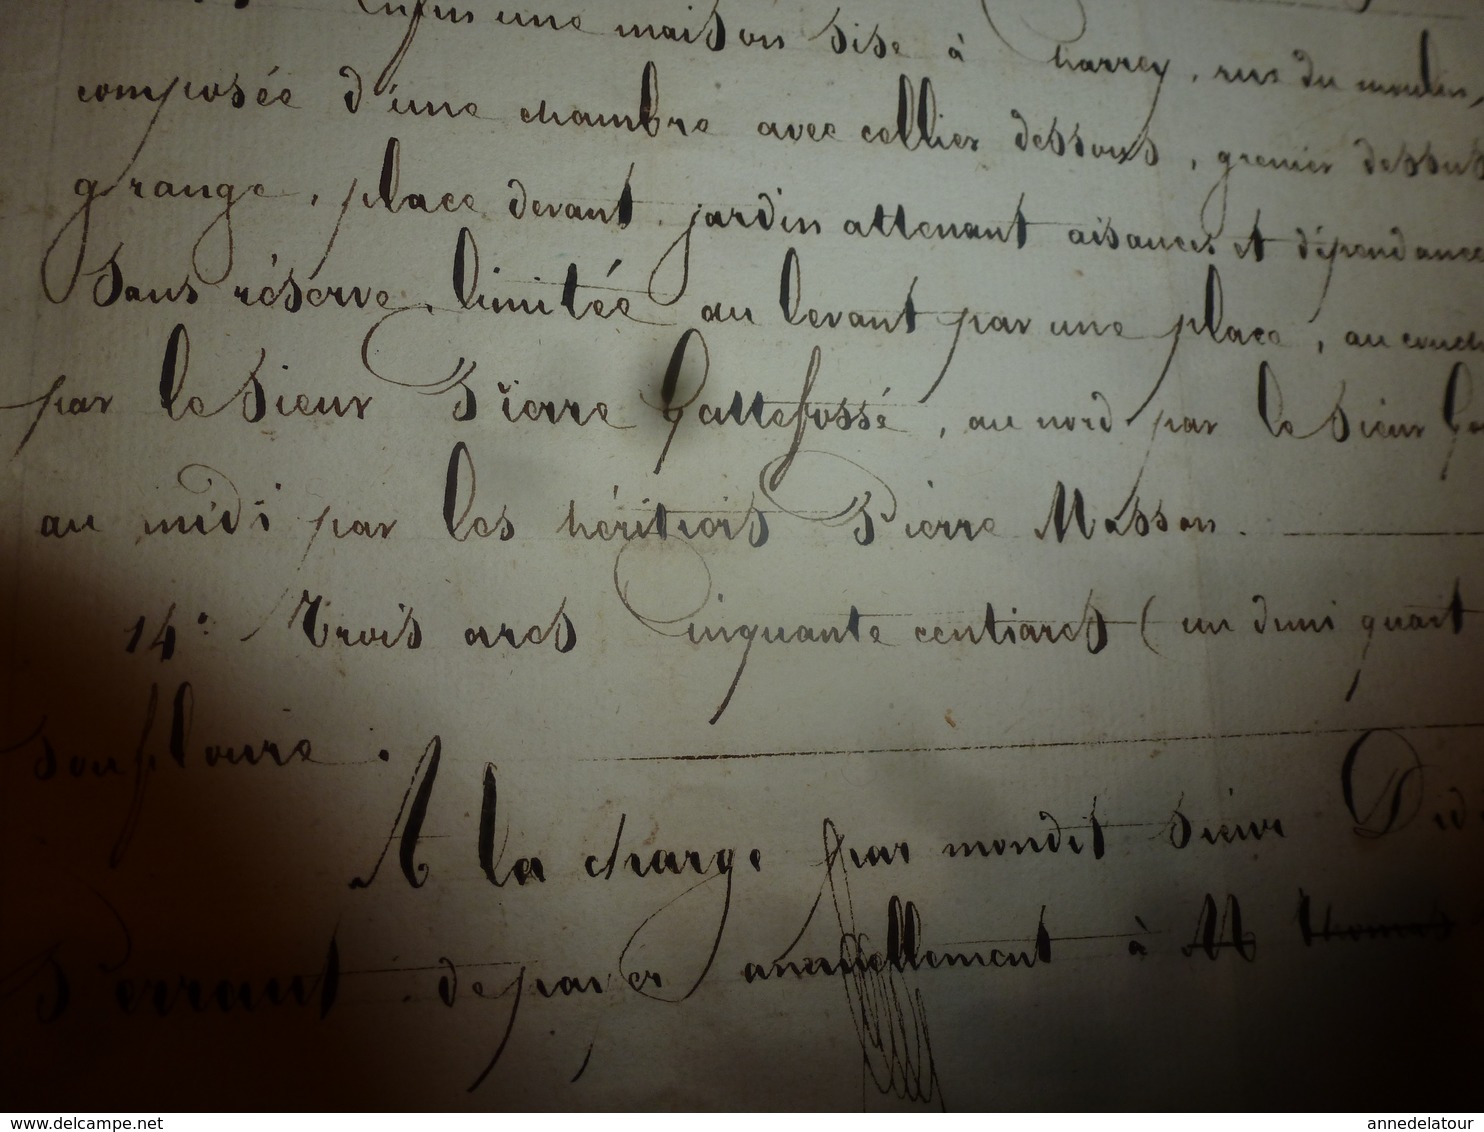 Enfin une maison sise à Charrey, rue du moulin,
composée d'une chambre avec cellier dessous, grenier dessus
grange, place devant jardin attenant aisances et dépendances
Sans réserve, limitée au levant par une place, au couch
par le Sieur Pierre Gattefossé, au nord par le Sieur Ga
au midi par les héritiers Pierre Masson.
14° Trois ares Cinquante centiares (un demi quart
A la charge par mondit Sieur Did
Perraut de payer annuellement à M Thomas
www.delcampe.net
annedelatour